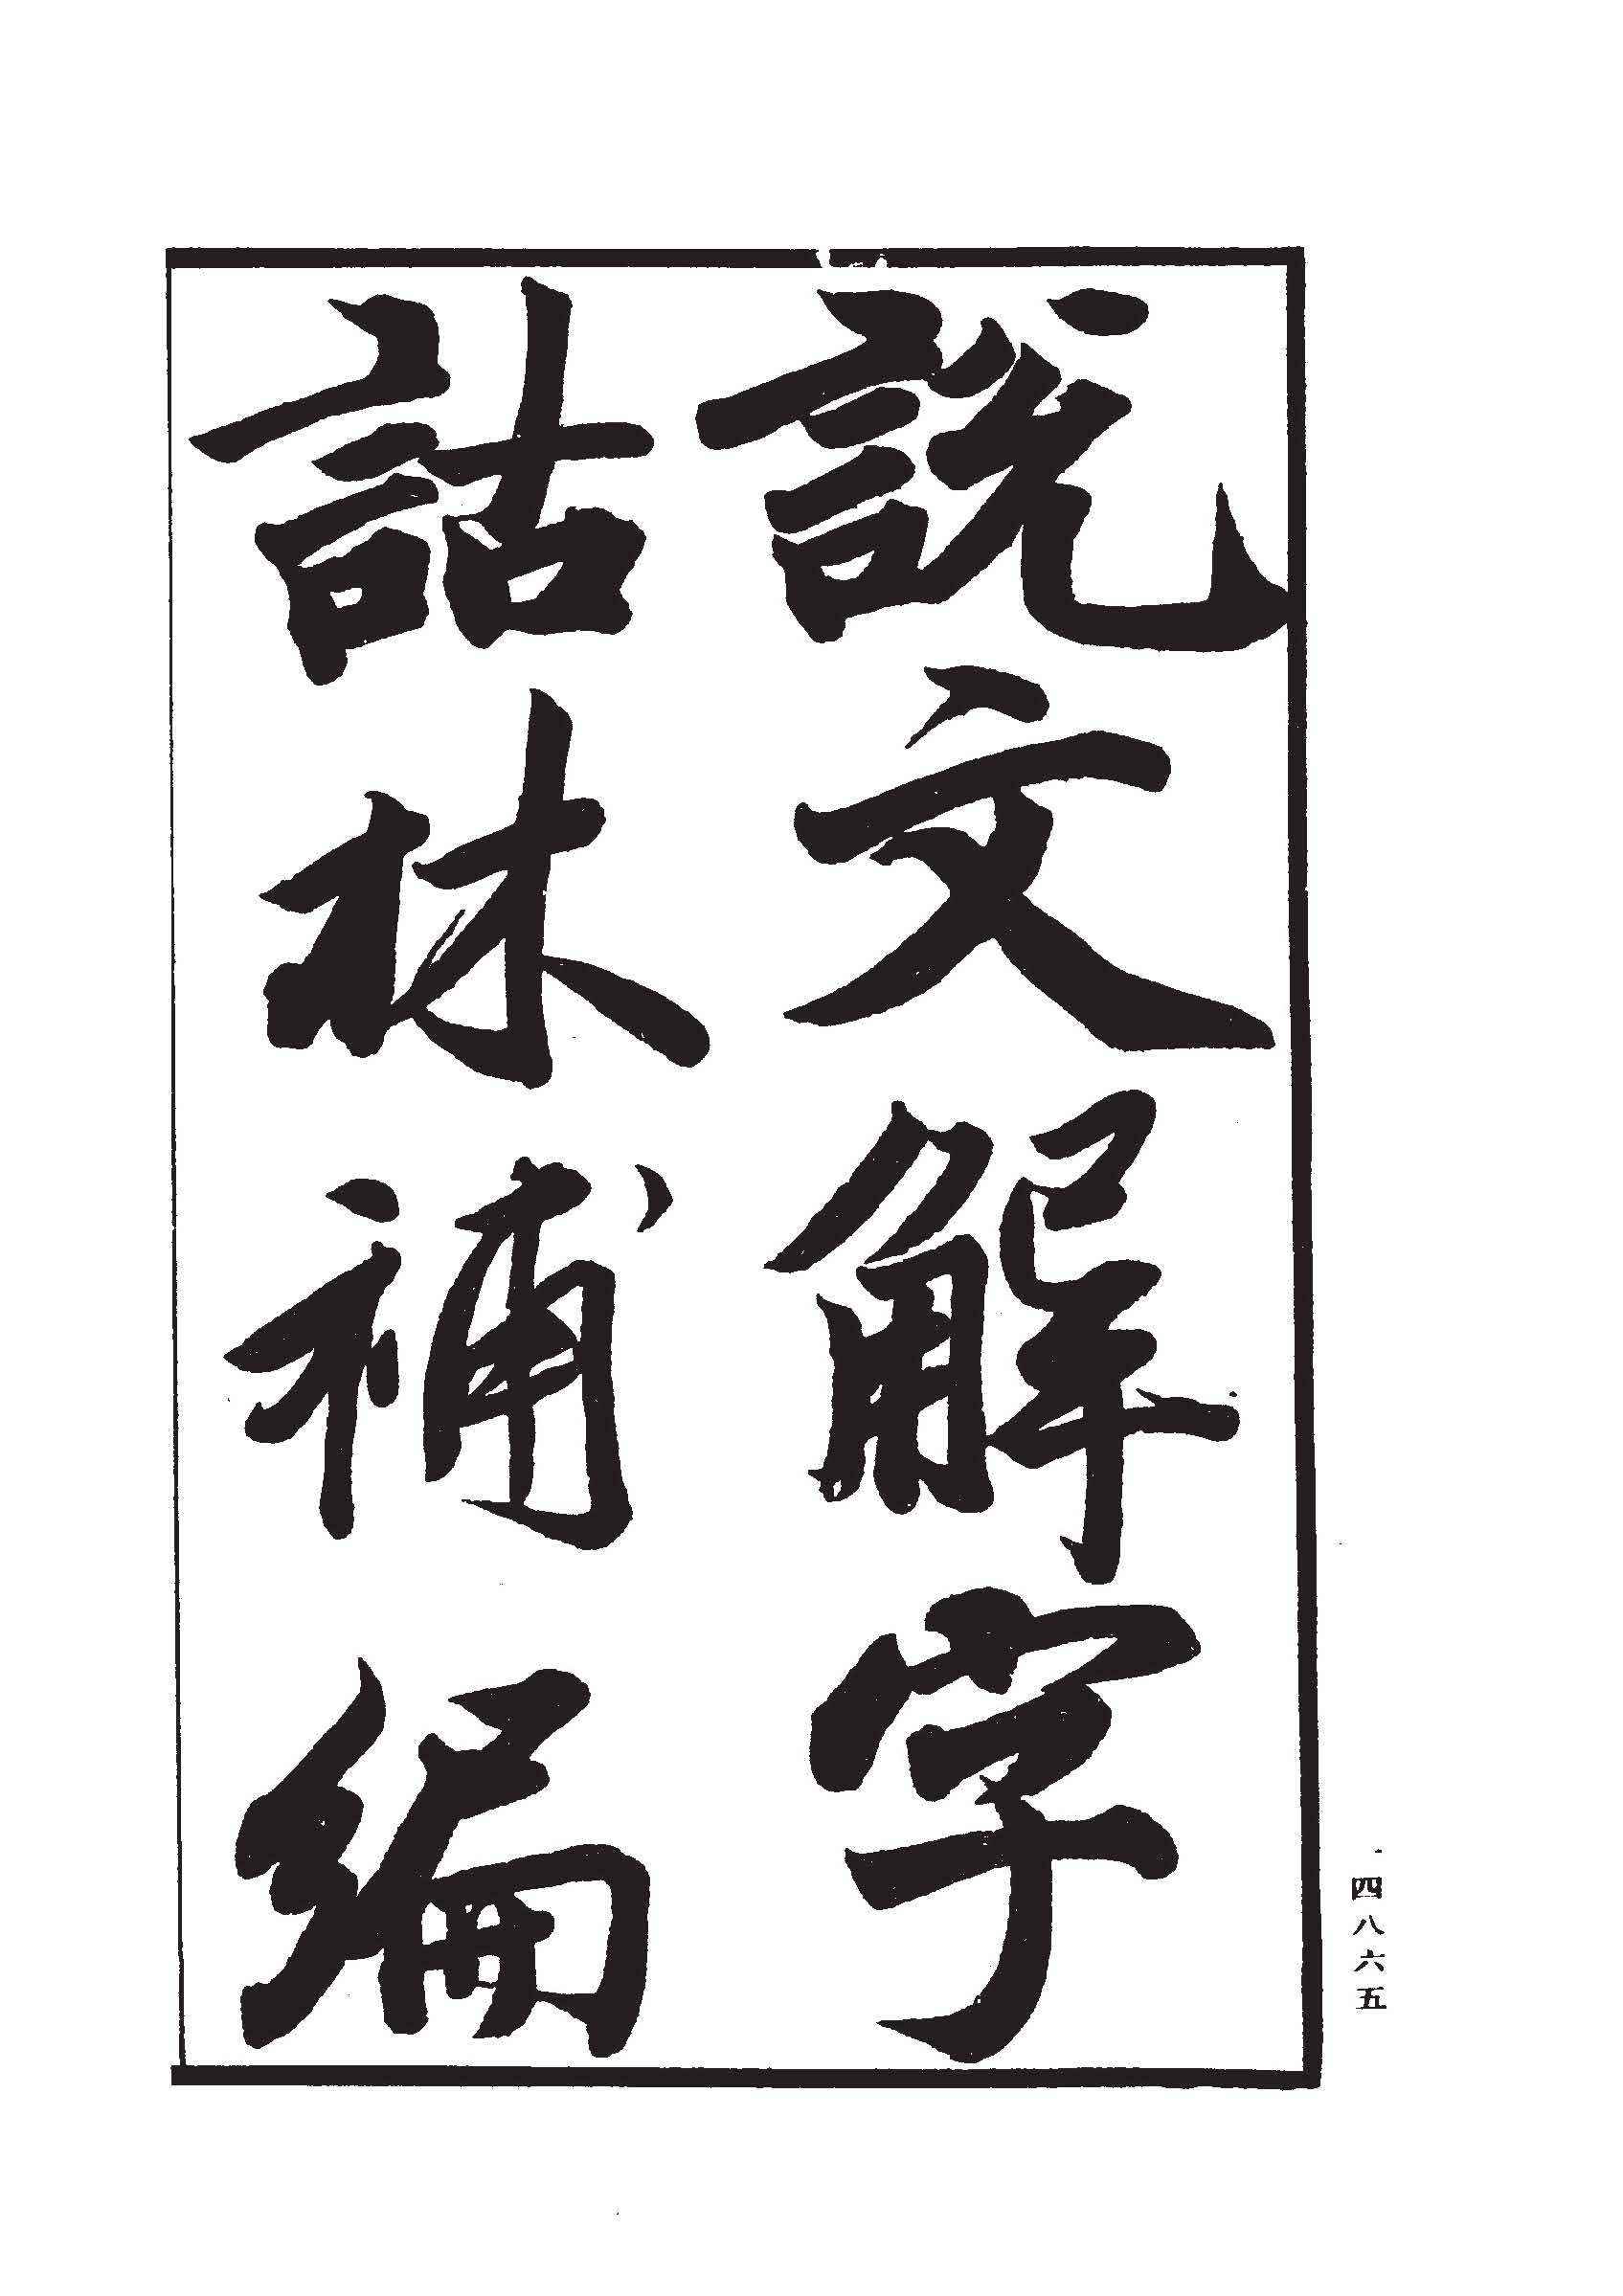 說文解字
詁林補編
四八六五